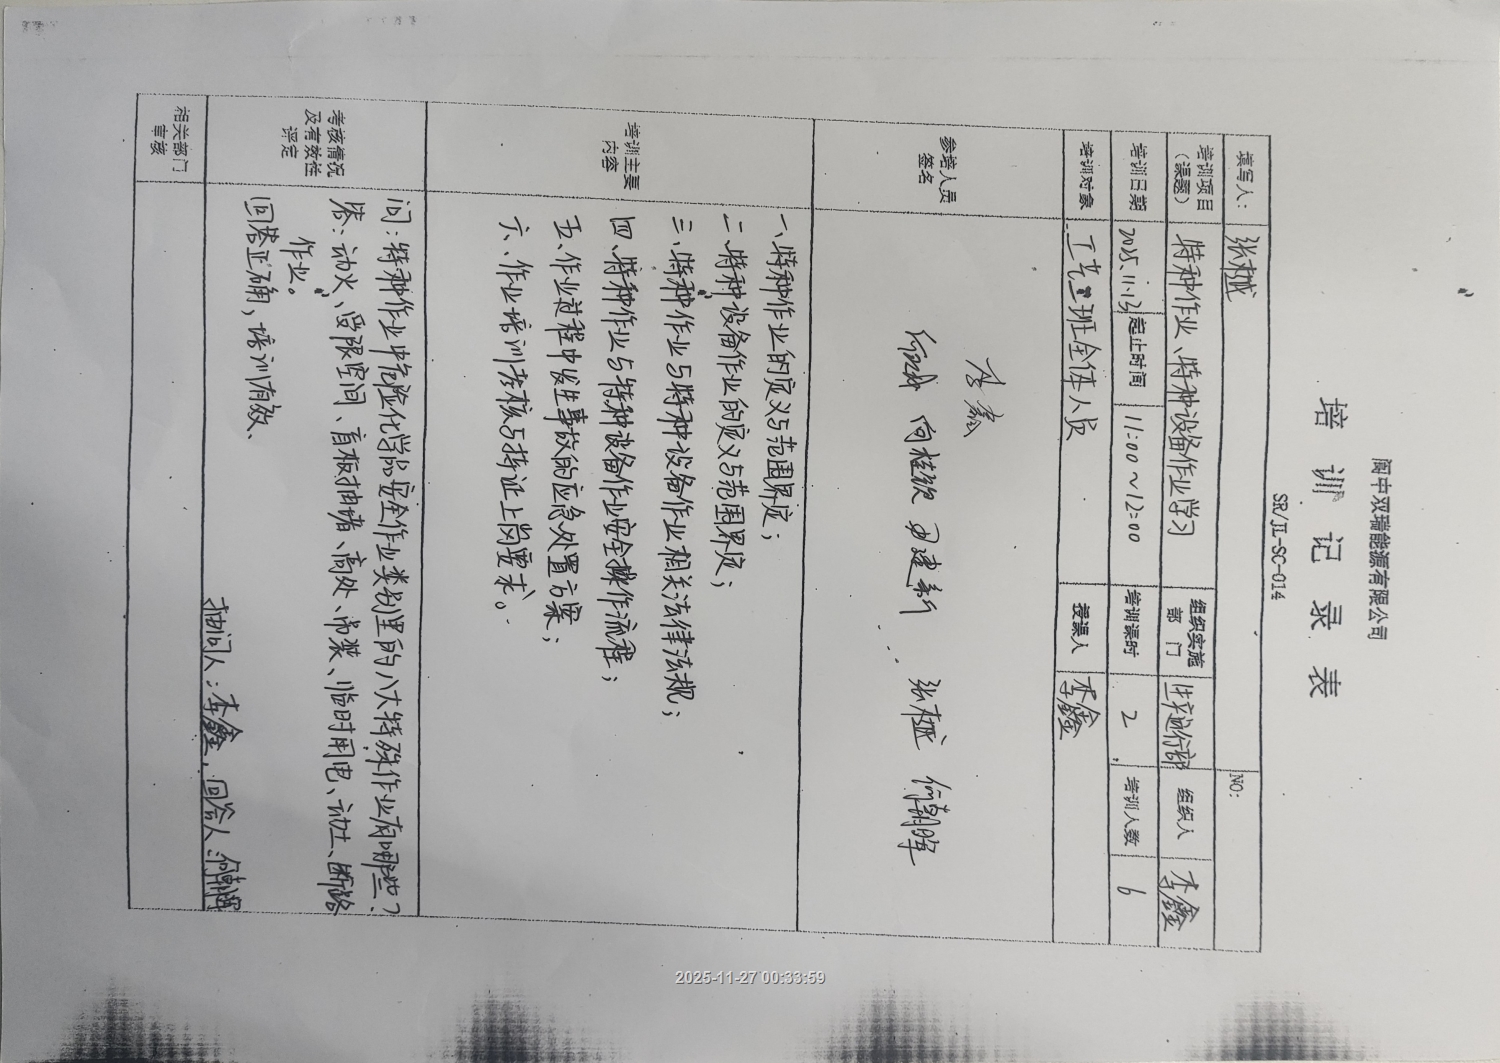 阆中双瑞能源有限公司
培训记录表
SR/JL-SC-014
填写人： 张樾 NO:
培训项目（课题） 特种作业、特种设备作业学习 组织实施部门 生产运行部 组织人 李鑫
培训日期 2025.11.13 起止时间 11:00～12:00 培训课时 2 培训人数 6
培训对象 工艺三班全体人员 授课人 李鑫
参培人员签名
李鑫
向桂钦 张樾 何朝晖
培训主要内容
一、特种作业的定义与范围界定；
二、特种设备作业的定义与范围界定；
三、特种作业与特种设备作业相关法律法规；
四、特种作业与特种设备作业安全操作流程；
五、作业过程中发生事故的应急处置方案；
六、作业培训考核与持证上岗要求。
考核情况及有效性评定
问：特种作业中危险化学品安全作业类别里的八大特殊作业有哪些？
答：动火、受限空间、盲板抽堵、高处、吊装、临时用电、动土、断路
作业。
回答正确，培训有效、
抽问人：李鑫，回答人：何朝晖
相关部门审核
2025-11-27 00:33:59